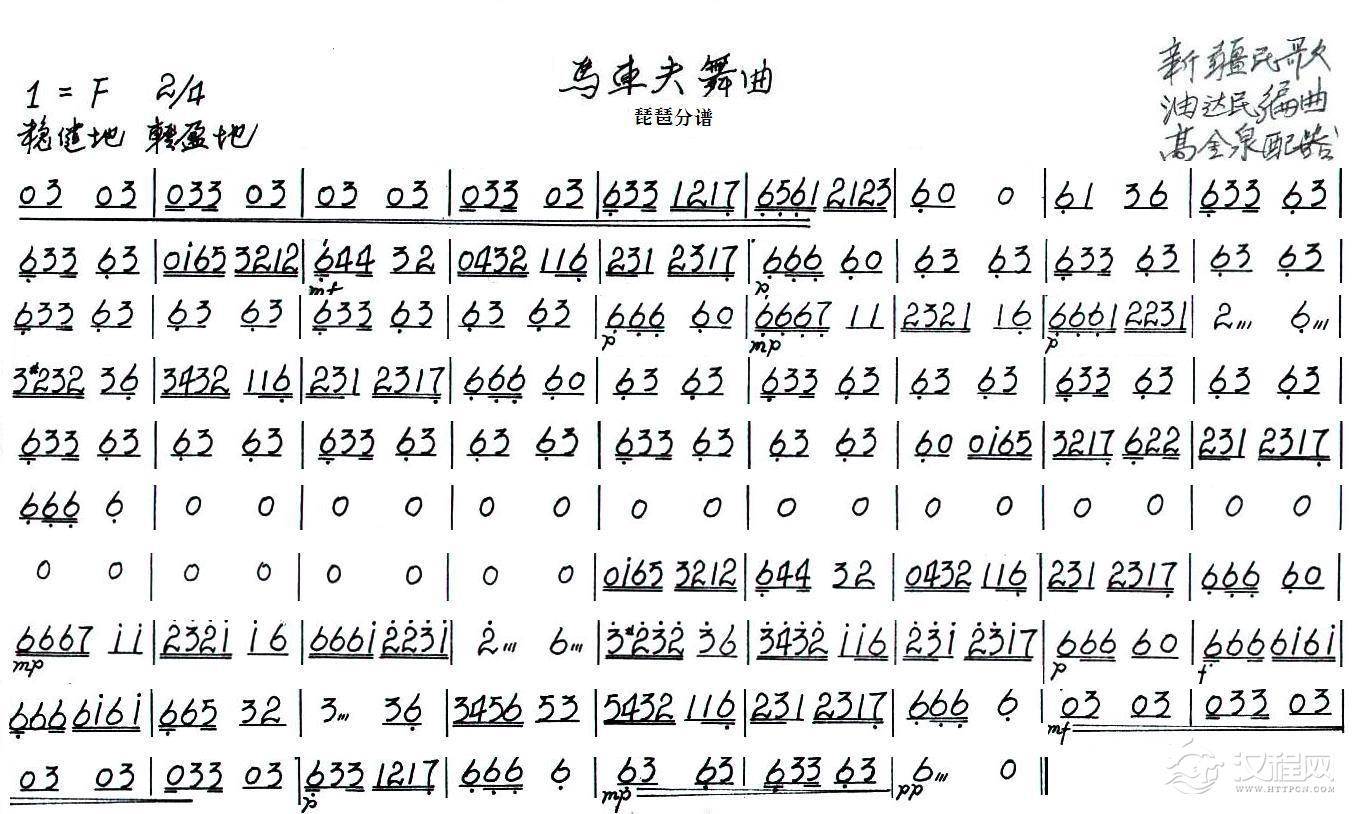 马车夫舞曲
琵琶分谱
1 = F 2/4
稳健地 轻盈地
新疆民歌
油达民编曲
高金泉配器
03 03 | 033 03 | 03 03 | 033 03 | 633 1217 | 6561 2123 | 60 0 | 61 36 | 633 63 |
633 63 | 0i65 3212 | 644 32 | 0432 116 | 231 2317 | 666 60 | 63 63 | 633 63 | 63 63 |
mf p
633 63 | 63 63 | 633 63 | 63 63 | 666 60 | 6667 11 | 2321 16 | 6661 2231 | 2,,, 6,,, |
p mp p
3#232 36 | 3432 116 | 231 2317 | 666 60 | 63 63 | 633 63 | 63 63 | 633 63 | 63 63 |
633 63 | 63 63 | 633 63 | 63 63 | 633 63 | 63 63 | 60 0i65 | 3217 622 | 231 2317 |
666 6 | 0 0 | 0 0 | 0 0 | 0 0 | 0 0 | 0 0 | 0 0 | 0 0 |
0 0 | 0 0 | 0 0 | 0 0 | 0i65 3212 | 644 32 | 0432 116 | 231 2317 | 666 60 |
6667 ii | 232i i6 | 666i 223i | 2,,, 6,,, | 3#232 36 | 3432 ii6 | 23i 23i7 | 666 60 | 666 6i6i |
mp p f
666 6i6i | 665 32 | 3,,, 36 | 3456 53 | 5432 116 | 231 2317 | 666 6 | 03 03 | 033 03 |
mf
03 03 | 033 03 | 633 1217 | 666 6 | 63 63 | 633 63 | 6,,, 0 ||
p mp pp
汉程网
WWW.HTTPCN.COM